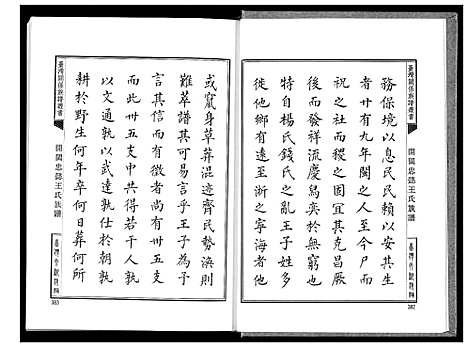 務保境以息民民賴以安其生
者廿有九年閩之人至今尸而
祝之社而稷之固宜其克昌厥
後而發祥流慶烏奕於無窮也
特自楊氏錢氏之亂王子子姓
徙他鄉有遠至浙之寧海者他
開閩忠懿王氏族譜
382
臺灣關係族譜叢書
或竄身草莽混迹齊民勢渙則
難萃譜其可得乎王子為不佞
言其信而有徵者尚有卅五支
而此卅五支中其孰在朝孰在
以文通孰以武達孰仕於朝孰
耕於野生何年卒何日葬何所
開閩忠懿王氏族譜
383